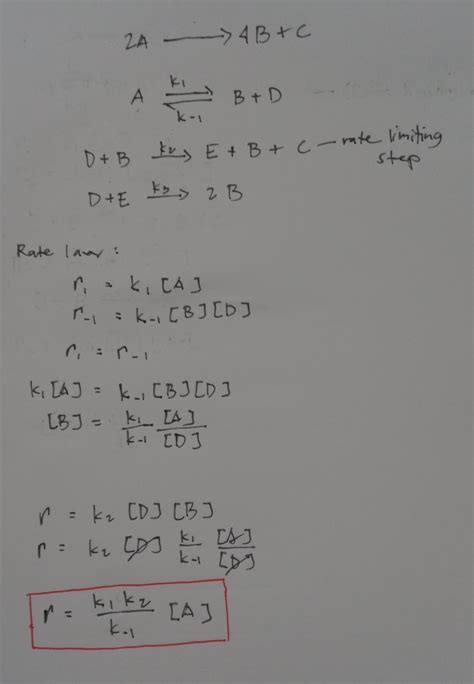 2A ⟶ 4B + C
A ⇌ B + D k₁ k-₁
D + B k₂→ E + B + C — rate limiting step
D + E k₃→ 2B
Rate law :
r₁ = k₁ [A]
r-₁ = k-₁ [B][D]
r₁ = r-₁
k₁[A] = k-₁ [B][D]
[B] = k₁/k-₁ [A]/[D]
r = k₂ [D][B]
r = k₂ [D] k₁/k-₁ [A]/[D]
r = k₁k₂/k-₁ [A]